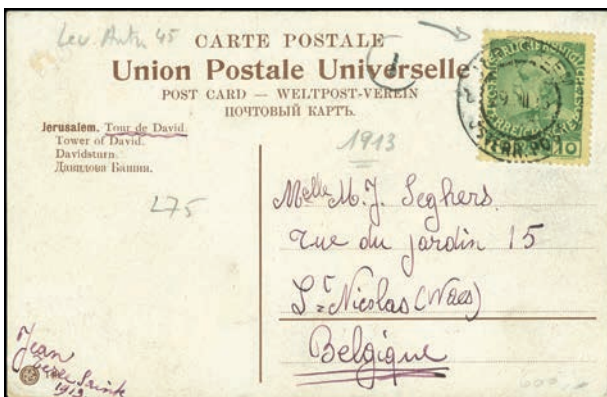 Lev. Autr. 45
CARTE POSTALE
Union Postale Universelle
POST CARD — WELTPOST-VEREIN
ПОЧТОВЫЙ КАРТЪ.
1
Jerusalem. Tour de David.
Tower of David.
Davidsturn.
Давидова Башни.
275
1913
Melle M. J. Seghers.
rue du jardin 15
St Nicolas (Waes)
Belgique
Jean
Terre Sainte
1913
10
600,-